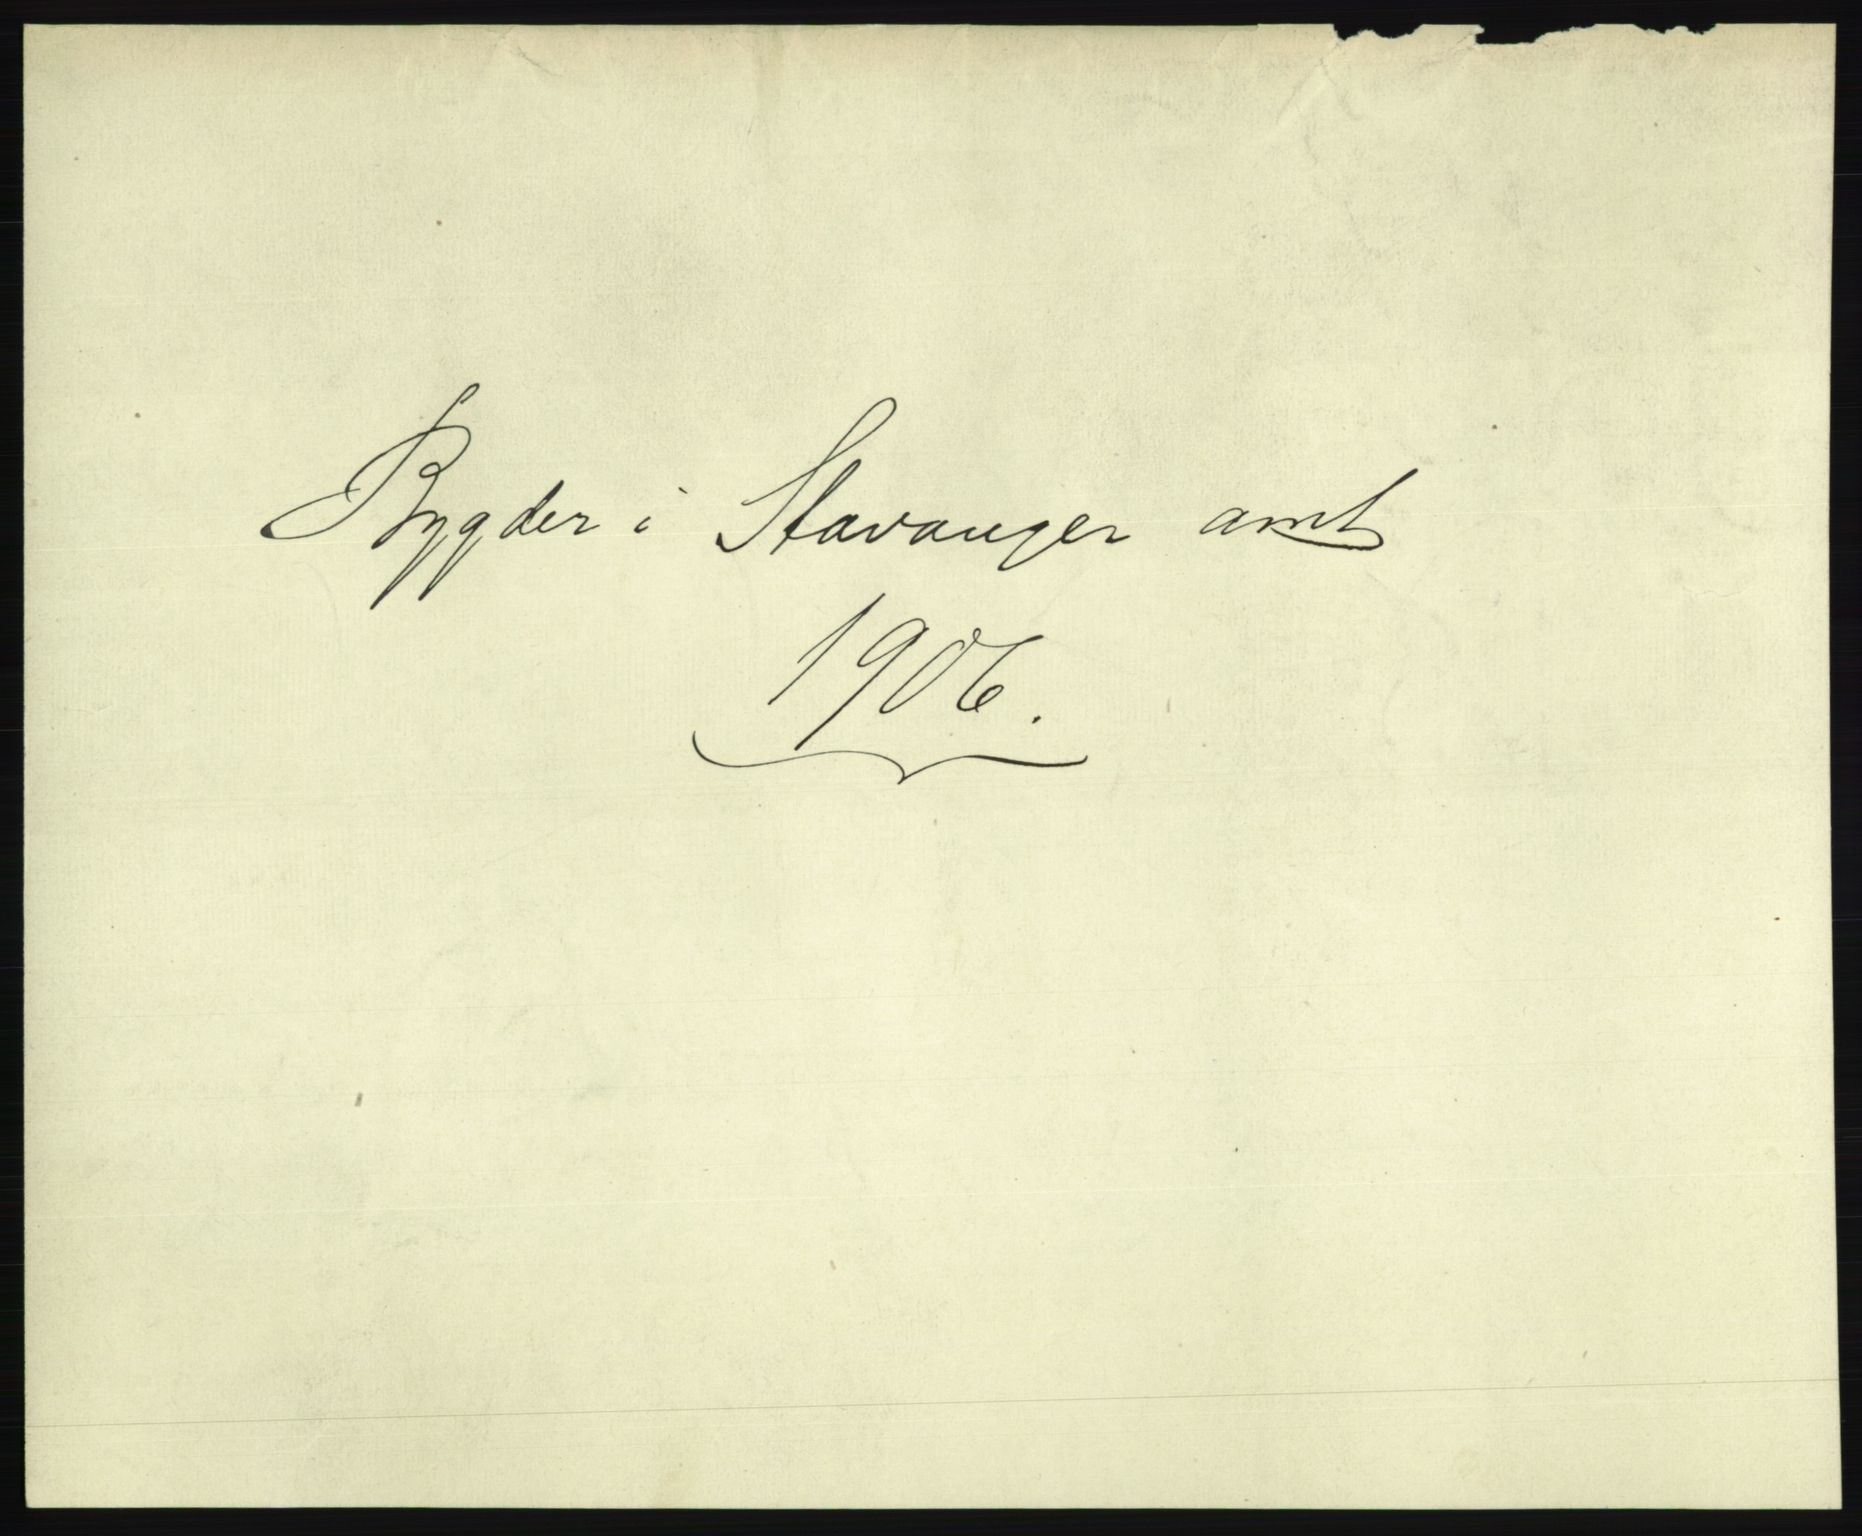 Bygder i Stavanger amt
1906.